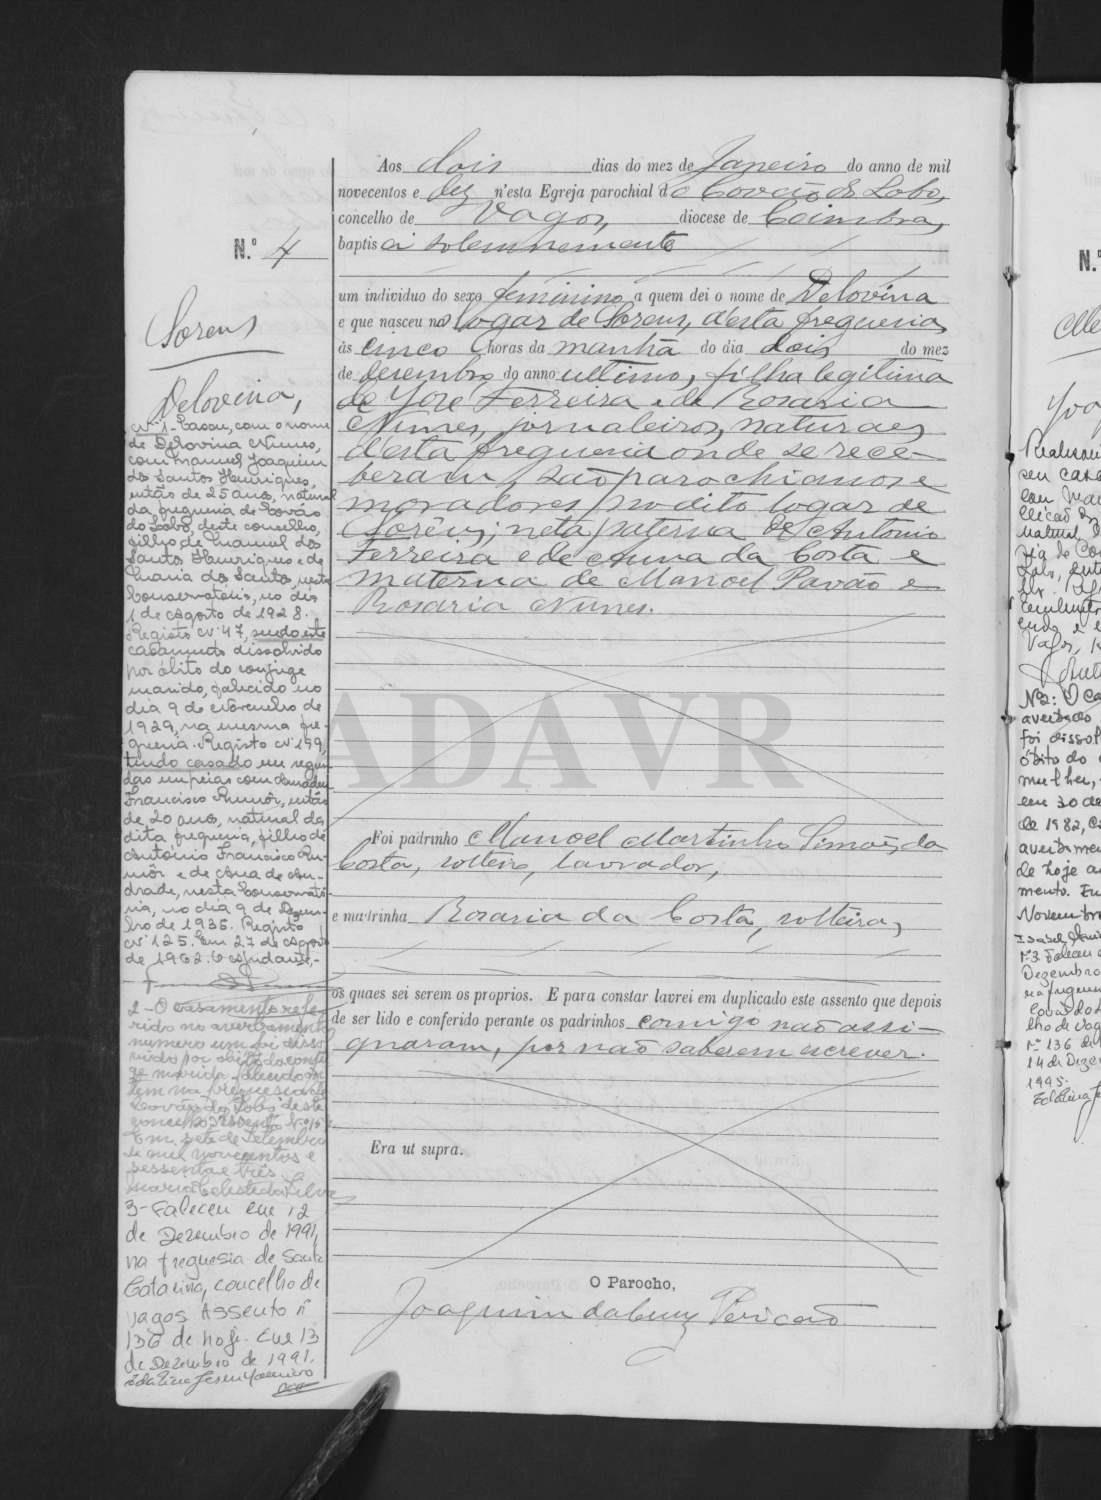 N.º 4
Sorens
Delovina,
Nº 1 - Casou, com o nome
de Delovina Nunes,
com Manuel Joaquim
dos Santos Henriques,
então de 25 anos, natural
da freguesia de Covão
do Lobo, deste concelho,
filho de Manuel dos
Santos Henriques e de
Maria dos Santos, nesta
Conservatória, no dia
1 de Agosto de 1928.
Registo nº 47, sendo este
casamento dissolvido
por óbito do conjuge
marido, falecido no
dia 9 de Novembro de
1929, na mesma fre-
guesia. Registo nº 199,
tendo casado em segun-
das nupcias com
Francisco Rumôr, então
de 20 anos, natural da
dita freguesia, filho de
António Francisco Ru-
môr e de Ana de An-
drade, nesta Conservató-
ria, no dia 9 de Dezem-
bro de 1935. Registo
nº 125. Em 27 de Agosto
de 1962. O ajudante,
2 - O casamento refe-
rido no averbamento
numero um foi disso
vido por obito do conju
ge marido falecido
tem na freguesia de
Covão do Lobo deste
concelho assento
Em sete de Setembro
de mil novecentos e
sessenta e três
Maria Celeste da Silva
3 - Faleceu em 12
de Dezembro de 1991,
na freguesia de Santa
Catarina, concelho de
Vagos Assento nº
136 de hoje. Em 13
de Dezembro de 1991.
Aos dois dias do mez de Janeiro do anno de mil
novecentos e dez n'esta Egreja parochial de Covão do Lobo,
concelho de Vagos, diocese de Coimbra,
baptisei solemnemente
um individuo do sexo feminino a quem dei o nome de Delovina
e que nasceu no logar de Sorens, d'esta freguesia,
ás cinco horas da manhã do dia dois do mez
de desembro do anno ultimo, filha legitima
de José Ferreira e de Rosaria
Nunes, jornaleiros, naturaes
d'esta freguesia onde se rece-
beram, são parochianos e
moradores no dito logar de
Sorêns; neta paterna de Antonio
Ferreira e de Anna da Costa e
materna de Manoel Pavão e
Rosaria Nunes.
ADAVR
Foi padrinho Manoel Martinho Simões da
Costa, solteiro, lavrador,
e madrinha Rosaria da Costa, solteira,
os quaes sei serem os proprios. E para constar lavrei em duplicado este assento que depois
de ser lido e conferido perante os padrinhos comigo não assi-
gnaram, por não saberem escrever.
Era ut supra.
O Parocho,
Joaquim da Cruz Pericão
N.º
Nº2: O
averbado
foi dissol
óbito do
mulher,
em 30 de
de 1982,
de hoje
mento. Em
Novembro
Dezembro
Nº 136
14 de Deze
1995.